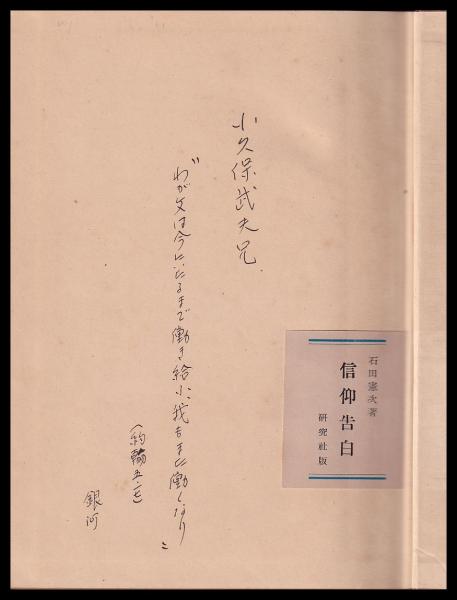 小久保武夫兄
"わが父は今にいたるまで働き給ふ、我もまた働くなり"
(約翰五・一七)
銀河
石田憲次著
信仰告白
研究社版